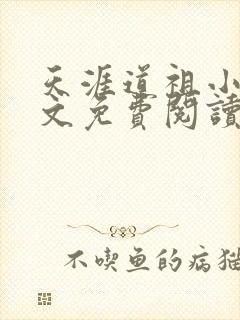 天涯道祖小
文免費閱讀
不喫鱼的病猫